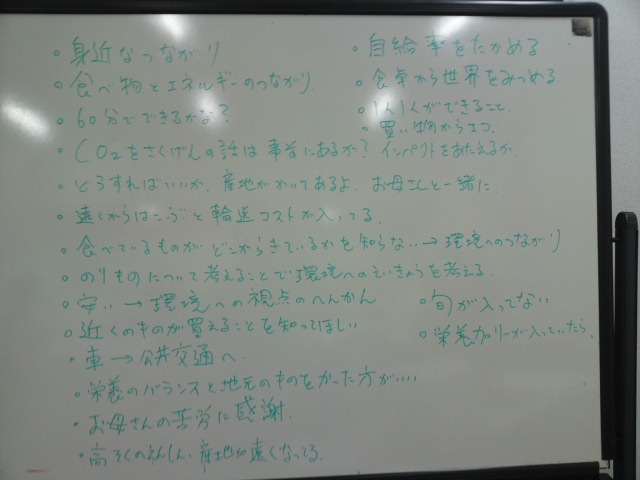 ・身近なつながり
・食べ物とエネルギーのつながり
・60分でできるかな?
・CO2をさくげんの話は事前にあるか? インパクトをあたえるか
・どうすればいいか、産地がかいてあるよ、お母さんと一緒に、
・遠くからはこぶと輸送コストが入ってる、
・食べているものがどこからきているかを知らない→環境へのつながり
・のりものについて考えることで環境へのえいきょうを考える、
・安い→環境への視点のへんかん
・近くのものが買えることを知ってほしい
・車→公共交通へ、
・栄養のバランスと地元のものをかった方がいい
・お母さんの苦労に感謝、
・高そくのえんしん、産地が遠くなってる、
・自給率をたかめる、
・食卓から世界をみつめる、
・1人1人ができること、
・買い物からエコ、
・旬が入ってない
・栄養カロリーが入っていたら、